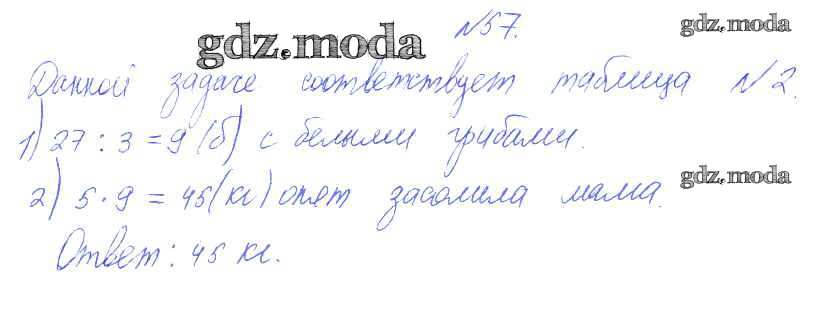 №57.
gdz.moda gdz.moda
Данной задаче соответствует таблица №2.
1) 27 : 3 = 9 (б) с белыми грибами.
2) 5 · 9 = 45 (кг) опят засолила мама.
gdz.moda
Ответ: 45 кг.